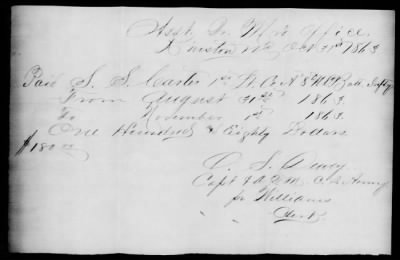 Asst Qr Mrs Office
Kinston NC Oct 31st 1863
Paid S. S. Carter 1st Lt Co A 8th Batt
From August 31st 1863
To November 1st 1863
One Hundred & Eighty Dollars
$180.00
C. S. Dewey
Capt & A Q M C S Army
pr Williams
Clerk